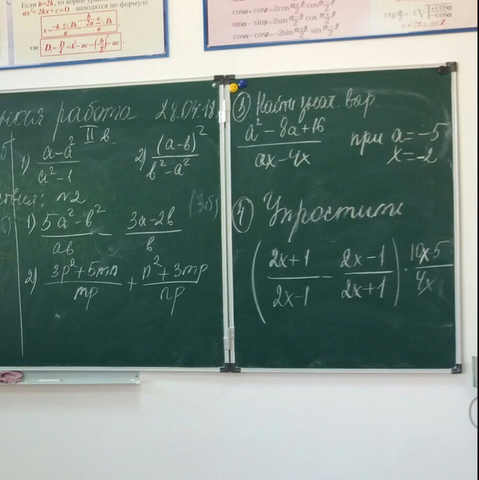 Если b=2k, то корни
ax²+2kx+c=0 находятся по формуле
где
cosα+cosβ=2cos α+β/2 cos α-β/2
sinα-sinβ=2sin α-β/2 cos α+β/2
cosα-cosβ=-2sin α+β/2 sin α-β/2
работа 28.04.18
II в.
1) a-a²/a²-1 2) (a-b)²/b²-a²
№2
1) 5a²-b²/ab - 3a-2b/b (3б)
2) 3p²+5mn/mp + n²+3mp/np
③ Найти знач. выр
a²-8a+16/ax-4x при a=-5
x=-2
④ Упростить
(2x+1/2x-1 - 2x-1/2x+1) · 10x-5/4x